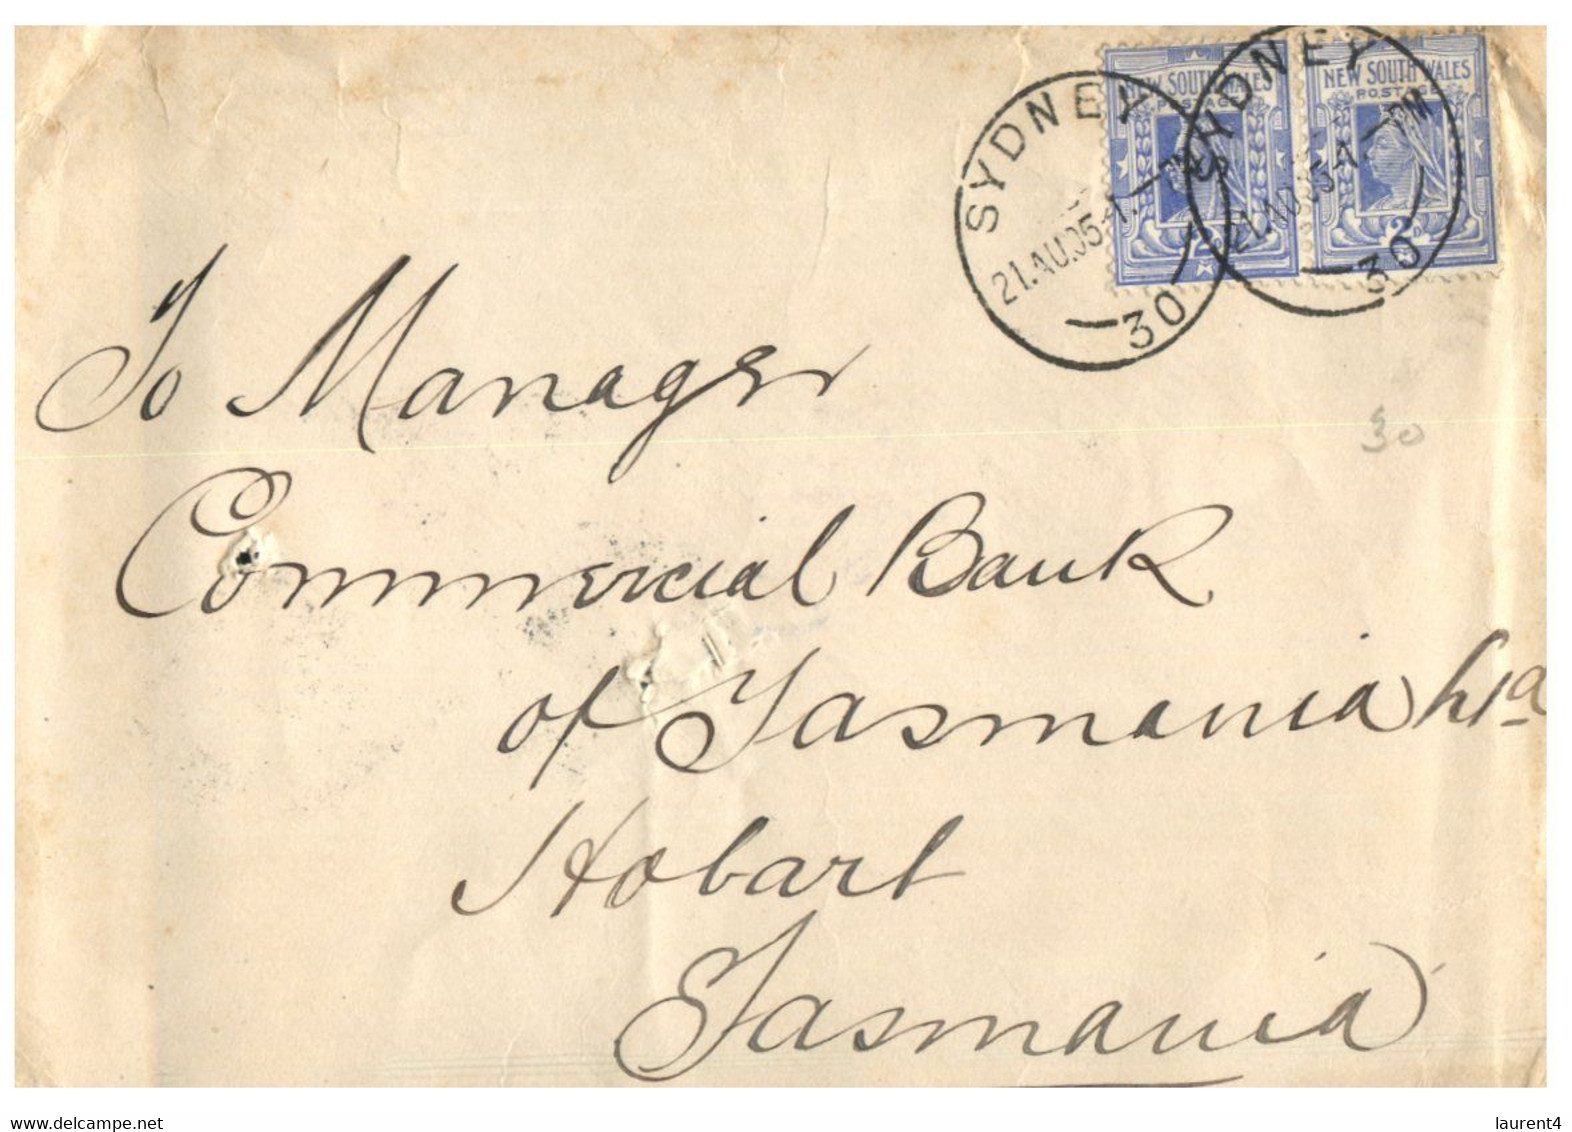 NEW SOUTH WALES
POSTAGE
2D
NEW SOUTH WALES
POSTAGE
2D
SYDNEY
21.AU.05
PM
30
SYDNEY
21.AU.05
PM
30
To Manager
30
Commercial Bank
of Tasmania Ltd
Hobart
Tasmania
delcampe.net
laurent4